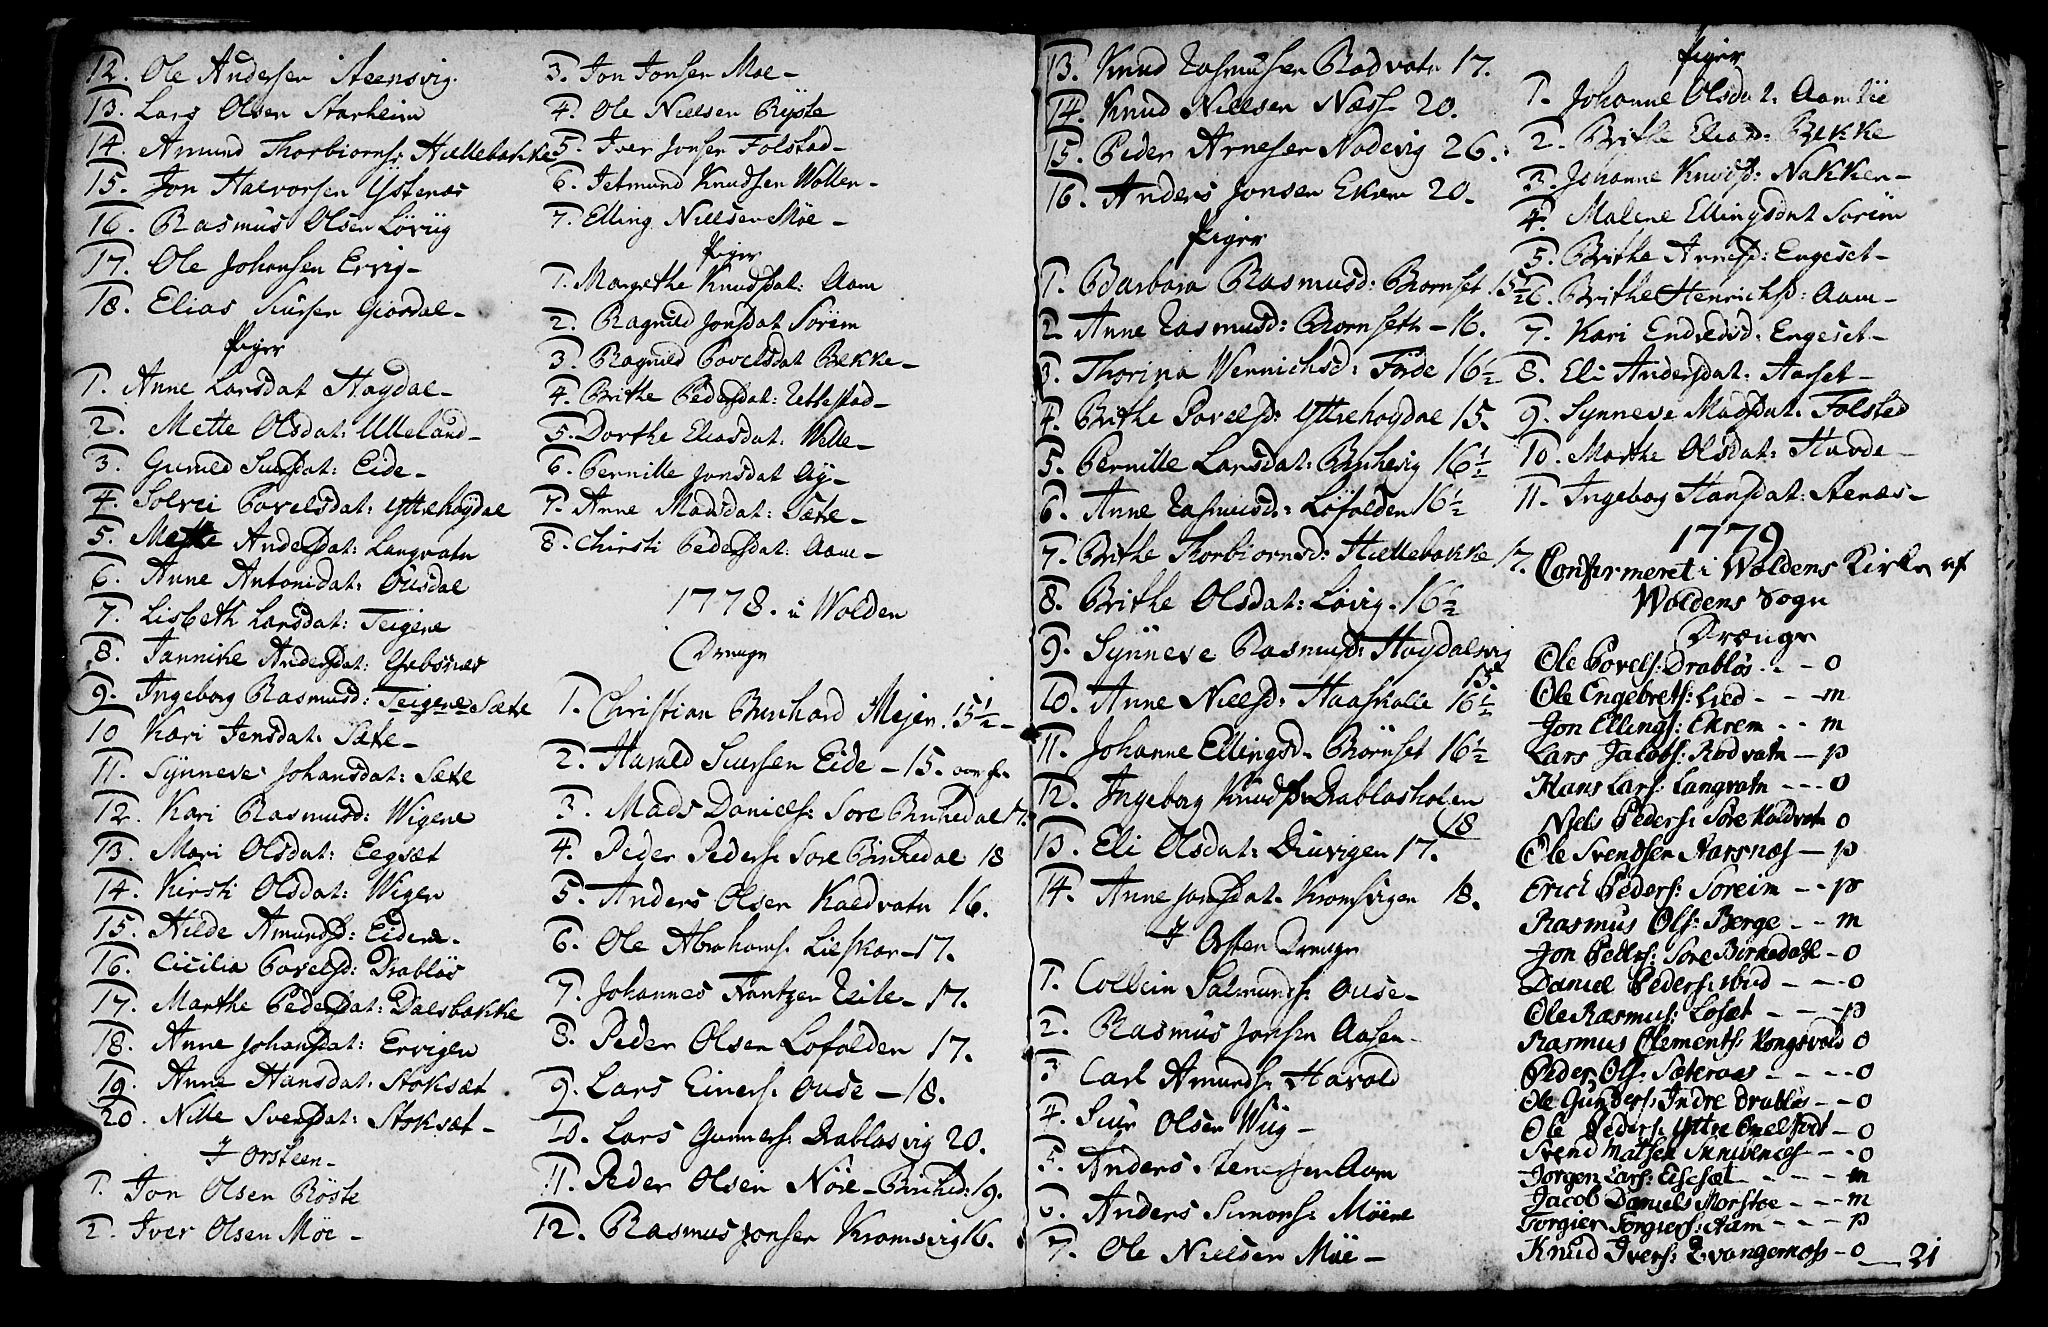 12. Ole Andersen Steensvig.
13. Lars Olsen Starheim
14. Amund Thorbiorns: Hellebakke
15. Jon Halvorsen Ystenæs
16. Rasmus Olsen Löviig
17. Ole Johansen Ervig-
18. Elias Siursen Giosdal-
Piger
1. Anne Larsdat Høydal-
2. Mette Olsdat: Ulleland-
3. Gunild Siursdat: Eide-
4. Solvei Povelsdat: Yttrehøydal
5. Mette Andersdat: Langvatn
6. Anne Antonidat: Ousdal
7. Lisbeth Larsdat: Teigene
8. Jannike Andersdat:
9. Ingeborg Rasmusd: Teigene Sæte
10 Kari Jensdat: Sæte-
11. Synneve Johansdat: Sæte
12. Kari Rasmusd: Wigene
13. Mari Olsdat: Eegsæt
14. Kirsti Olsdat: Wigen
15. Hilde Amundsd: Eidene.
16. Cicilia Povelsd: Drabløs
17. Marthe Pedersdat: Dalsbakke
18. Anne Johansdat: Ervigen
19. Anne Hansdat: Stoksæt
20. Nille Svensdat: Stoksæt-
I Orsteen-
1. Jon Olsen Röste
2. Iver Olsen Möe-
3. Jon Jonsen Moe-
4. Ole Nielsen Ryste
5. Iver Jonsen Folstad-
6. Jetmund Knudsen Wollen-
7. Elling Nielsen Möe-
Piger
1. Margrethe Knudsdat: Aam
2. Ragnild Jonsdat Sørem
3. Ragnild Povelsdat Bekke-
4. Brithe Pedersdat:
5. Dorthe Eliasdat: Welle-
6. Pernille Jonsdat Øy-
7. Anne Madsdat: Sæte-
8. Chirsti Pedersdat: Aam-
1778. i Wolden
Drenge
1. Christian Bernhard Mejer. 15½-
2. Harald Siursen Eide-15.
3. Mads Daniels: Sore Birkedal 17.
4. Peder Peders: Sore Birkedal 18
5. Anders Olsen Kaldvatn 16.
6. Ole Abrahams: Lieskar-17.
7. Johannes Frantzen 17.
8. Peder Olsen Lofolden 17.
9. Lars Einers: Ouse-18.
10. Lars Gunners: Drablosvig 20.
11. Peder Olsen Nöre-Birked: 19.
12. Rasmus Jonsen Kromsvig 16.
13. Knud Rasmusen Rodvatn 17.
14. Knud Nielsen Næss 20.
15. Peder Arnesen Nodevig 26.
16. Anders Jonsen Ekrem 20.
Piger
1. Barbara Rasmusd: Bornset 15½
2 Anne Rasmusd: Bornseth-16.
3. Thorina Wernichsd: Förde 16½
4. Brithe Povelsd: Yttrehøgdal 15.
5. Pernille Larsdat: 16½
6. Anne Rasmusd: Löfolden 16½
7. Brithe Thorbiornsd: Hellebakke 17.
8. Brithe Olsdat: Lövig. 16½
9. Synneve Rasmusd: Høydalsvig
15
10. Anne Nielsd: Haaskolle 16½
11. Johanne Ellingsd. Börnset 16½
12. Ingeborg Knudsd: Drablosholen
18
13. Eli Olsdat: Diuvigen 17.
14. Anne Jonsdat. Kromsvigen 18.
I Orsten Drenge
1. Colbein Salmunds: Ouse-
2. Rasmus Jonsen Aasen-
3 Carl Amunds: Havold
4. Siur Olsen Wiig-
5. Anders Aam
6. Anders Simons: Möene
7. Ole Nielsen Möe-
Piger
1. Johanne Olsdat: Aamlie
2. Brithe Eliasd: Bekke
3. Johanne Knudsd: Nakken-
4. Malene Ellingsdat Sorem
5. Brithe Arnesd: Engeset-
6. Brithe Henrichsd: Aam-
7. Kari Endresd: Engeset-
8. Eli Andersdat: Aarset-
9. Synneve Madsdat: Folsted
10. Marthe Olsdat: Hovde-
11. Ingeborg Hansdat: Stenæs-
1779
Confirmeret i Woldens Kirke af
Woldens Sogn
Drænge
Ole Povels: Drablös - - o
Ole Engebrets: Lied - - - m
Jon Ellings: Ekrem - - m
Lars Jacobs: Rodvatn - p
Hans Lars: Langvatn - - - o
Niels Peders: Sore Koldvatn o
Ole Svendsen Aarsnæs - p
Erich Peders: Soreim - - p
Rasmus Ols: Berge - - m
Jon Peders: Sore Birkedahl - o
Daniel Peders: - - - o
Ole Rasmus: Losæt - - - p
Rasmus Clements: Kongsvold o
Peder Ols: Sæteraas - - - - o
Ole Gunders: Indre Drablos - - o
Ole Peders: Yttre - o
Svend Matsen - - o
Jorgen Lars: Elsesæt - - - - m
Jacob Daniels Morstøe - - m
Torgier Torgiers: Aam - - - p
Knud Ivers: - o
21